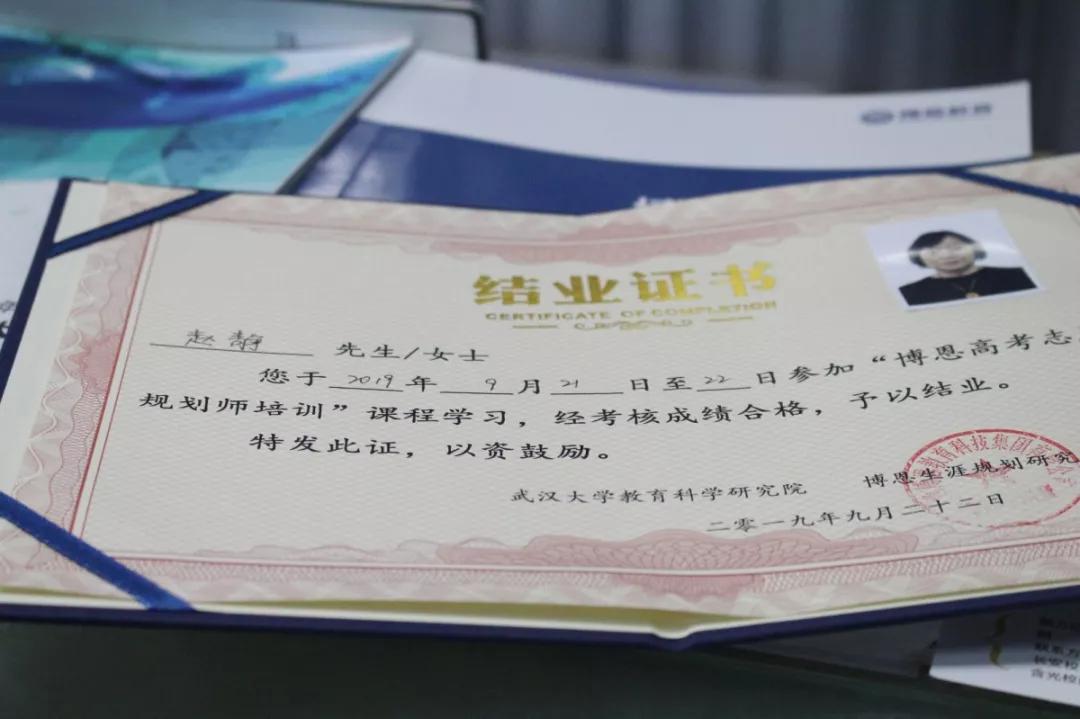 结业证书
CERTIFICATE OF COMPLETION
赵静 先生/女士
您于2019年9月21日至22日参加“博恩高考志
规划师培训”课程学习，经考核成绩合格，予以结业。
特发此证，以资鼓励。
武汉大学教育科学研究院 博恩生涯规划研究
二零一九年九月二十二日
教育科技集团